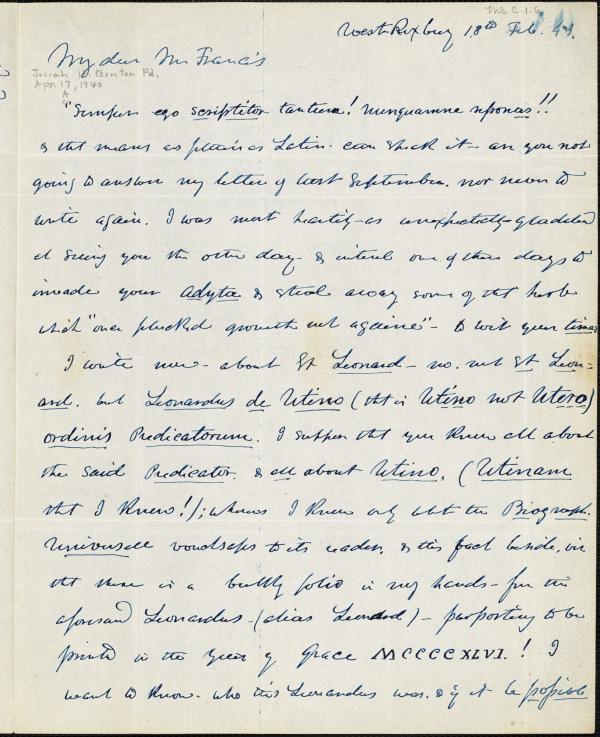 Ms. C. 1. 6
West Roxbury 18th Feb. 44.
My dear Mr Francis
Josiah H. Benton Fd.
Apr. 17, 1940
A
"Semper ego scriptitor tantum! nunquamne reponas!!
& tht means as plain as Latin can speak it — are you not
going to answer my letter of last September. nor never to
write again. I was most heartily — as unexpectedly gladdened
at seeing you the other day — & intend one of these days to
invade your adyta & steal away some of tht herb
which "once plucked groweth not againe" — to wit your time.
I write now — about St Leonard — no. not St Leon-
ard. but Leonardus de Utino (tht is Utino not Utero)
ordinis Predicatorum. I suppose tht you know all about
the said Predicator. & all about Utino. (Utinam
tht I knew!); whereas I know only wht the Biograph.
Universelle vouchsafes to its readers, & this fact beside, viz
tht there is a bulky folio in my hands — from the
aforesaid Leonardus — (alias Leonard) — purporting to be
printed in the Year of Grace MCCCCXLVI. ! I
want to know. who this Leonardus was. & if it be possible